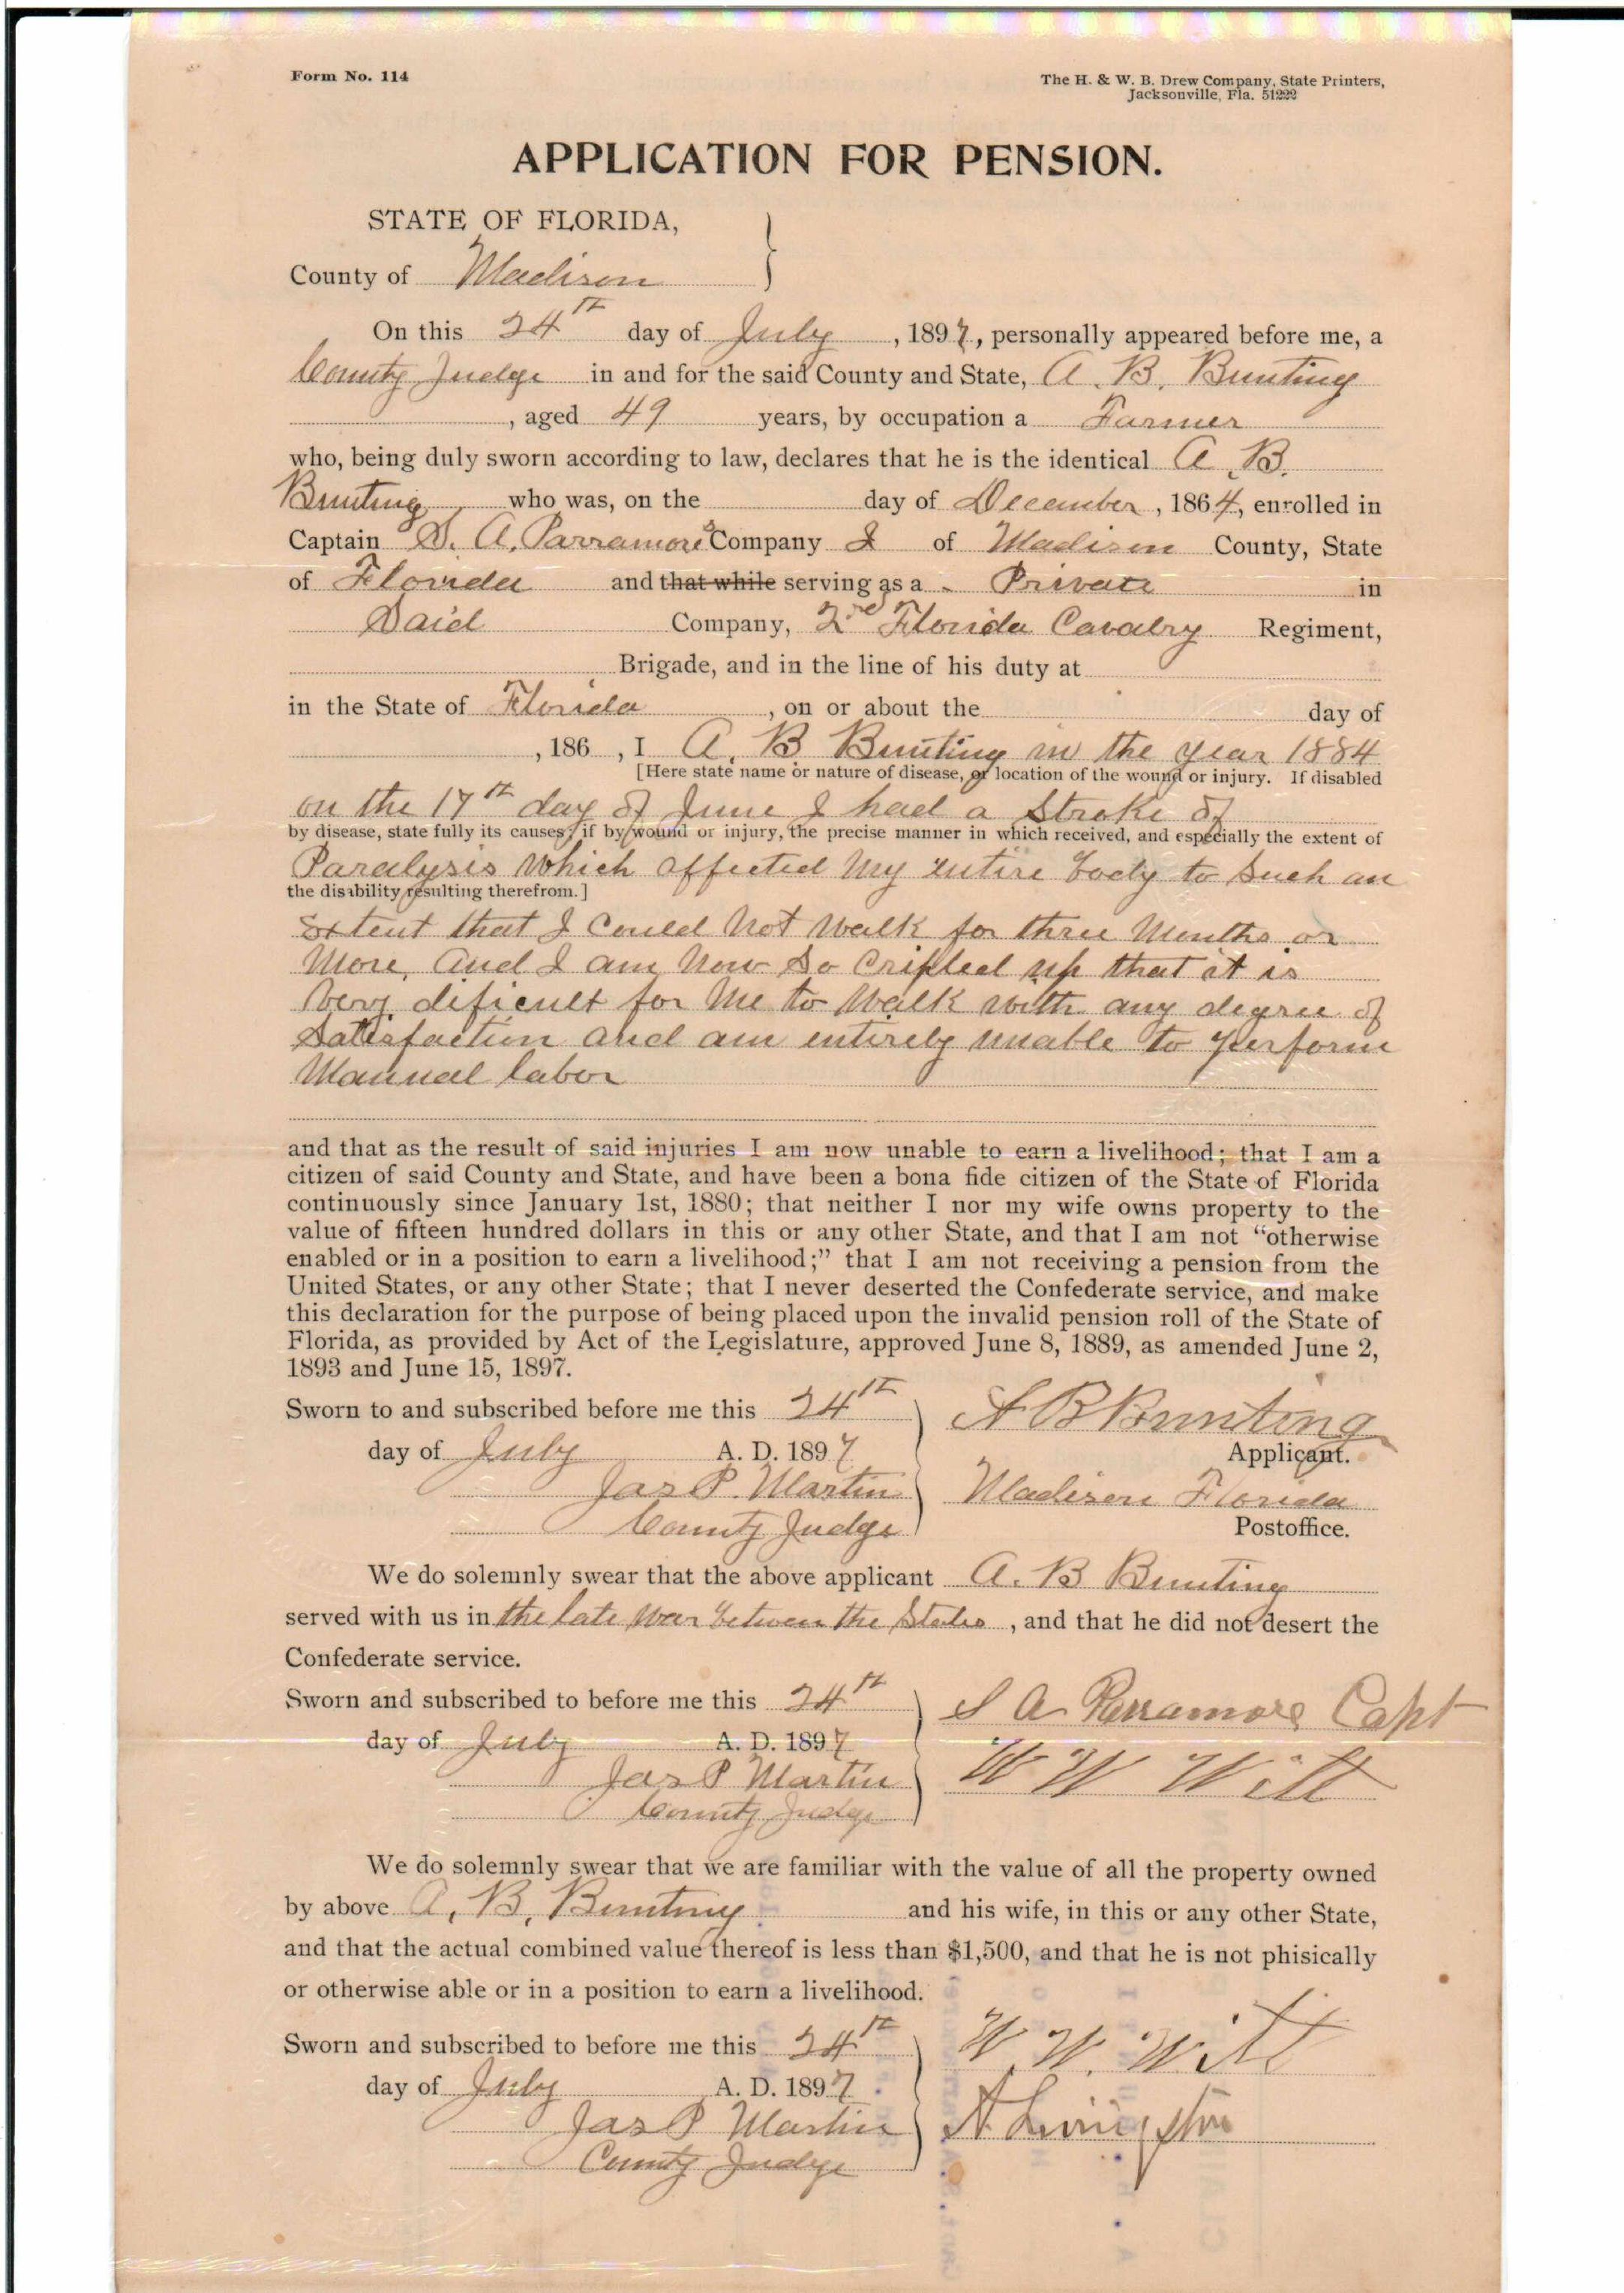 Form No. 114
The H. & W. B. Drew Company, State Printers,
Jacksonville, Fla. 51222
APPLICATION FOR PENSION.
STATE OF FLORIDA,
County of Madison
On this 24th day of July , 1897, personally appeared before me, a
County Judge in and for the said County and State, A. B. Bunting
, aged 49 years, by occupation a Farmer
who, being duly sworn according to law, declares that he is the identical A. B.
Bunting who was, on the day of December , 1864, enrolled in
Captain S. A. Parramore's Company I of Madison County, State
of Florida and that while serving as a Private in
Said Company, 2nd Florida Cavalry Regiment,
Brigade, and in the line of his duty at
in the State of Florida , on or about the day of
, 186 , I A. B Bunting in the year 1884
[Here state name or nature of disease, or location of the wound or injury. If disabled
on the 17th day of June I had a Stroke of
by disease, state fully its causes; if by wound or injury, the precise manner in which received, and especially the extent of
Paralysis which affected my entire body to such an
the disability resulting therefrom.]
Extent that I could not walk for three months or
more, and I am now so cripled up that it is
very dificult for me to walk with any degree of
Satisfaction and am entirely unable to perform
Manual labor
and that as the result of said injuries I am now unable to earn a livelihood; that I am a
citizen of said County and State, and have been a bona fide citizen of the State of Florida
continuously since January 1st, 1880; that neither I nor my wife owns property to the
value of fifteen hundred dollars in this or any other State, and that I am not “otherwise
enabled or in a position to earn a livelihood;” that I am not receiving a pension from the
United States, or any other State; that I never deserted the Confederate service, and make
this declaration for the purpose of being placed upon the invalid pension roll of the State of
Florida, as provided by Act of the Legislature, approved June 8, 1889, as amended June 2,
1893 and June 15, 1897.
Sworn to and subscribed before me this 24th
A B Bunting
day of July A. D. 1897
Applicant.
Jas P. Martin
Madison Florida
County Judge
Postoffice.
We do solemnly swear that the above applicant A. B Bunting
served with us in the late war between the States , and that he did not desert the
Confederate service.
Sworn and subscribed to before me this 24th
S A Parramore Capt
day of July A. D. 1897
W W Witt
Jas P Martin
County Judge
We do solemnly swear that we are familiar with the value of all the property owned
by above A. B. Bunting and his wife, in this or any other State,
and that the actual combined value thereof is less than $1,500, and that he is not phisically
or otherwise able or in a position to earn a livelihood.
Sworn and subscribed to before me this 24th
W. W. Witt
day of July A. D. 1897
Jas P Martin
A Livingston
County Judge